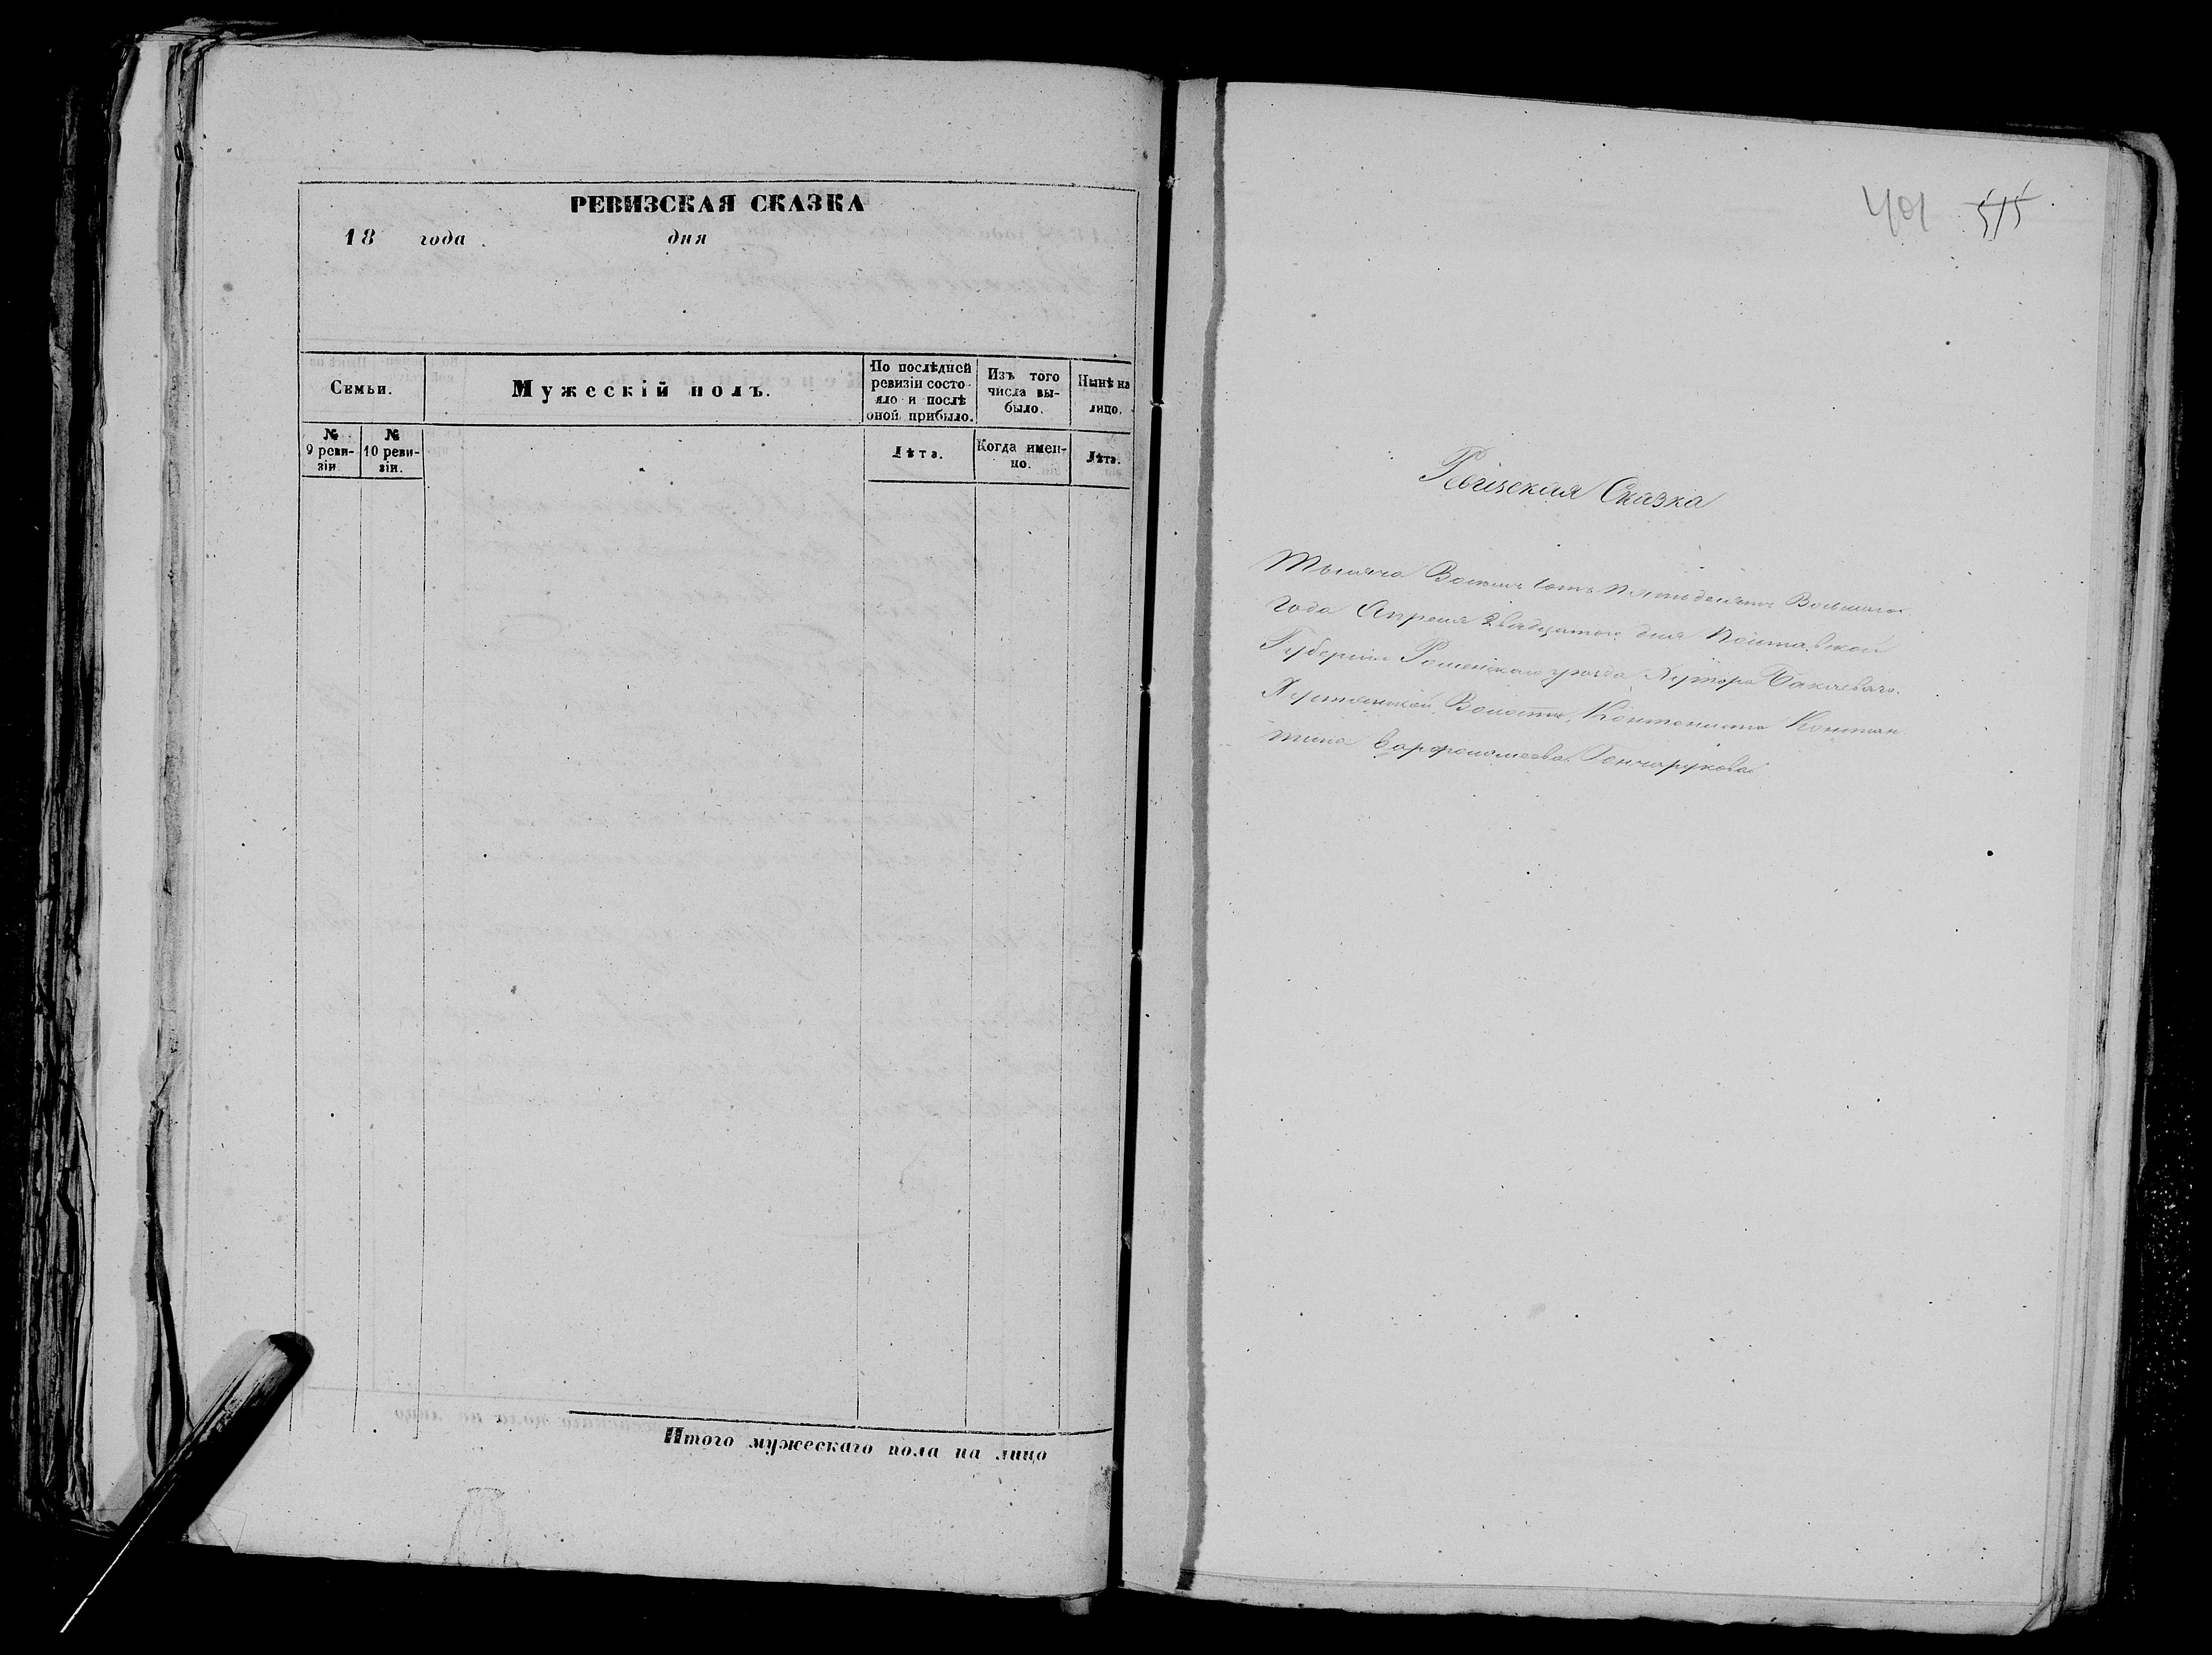 РЕВИЗСКАЯ СКАЗКА
18 года дня
Семьи.
Мужескій полъ.
По послѣдней
ревизіи состо-
яло и послѣ
оной прибыло.
Изъ того
числа вы-
было.
Нынѣ на
лицо.
№
9 реви-
зіи
№
10 реви-
зіи.
Лѣта.
Когда имен-
но.
Лѣта.
Итого мужескаго пола на лицо
401 515
Ревизская Сказка
Тысяча Восемь сотъ пятьдесятъ Восьмаго
года Апреля двадцатого дня Полтавской
Губернии Роменскаго уезда Хутора Бакаеваго
Волости, Кантониста Констан
тина Варфоломеева Гончарукова